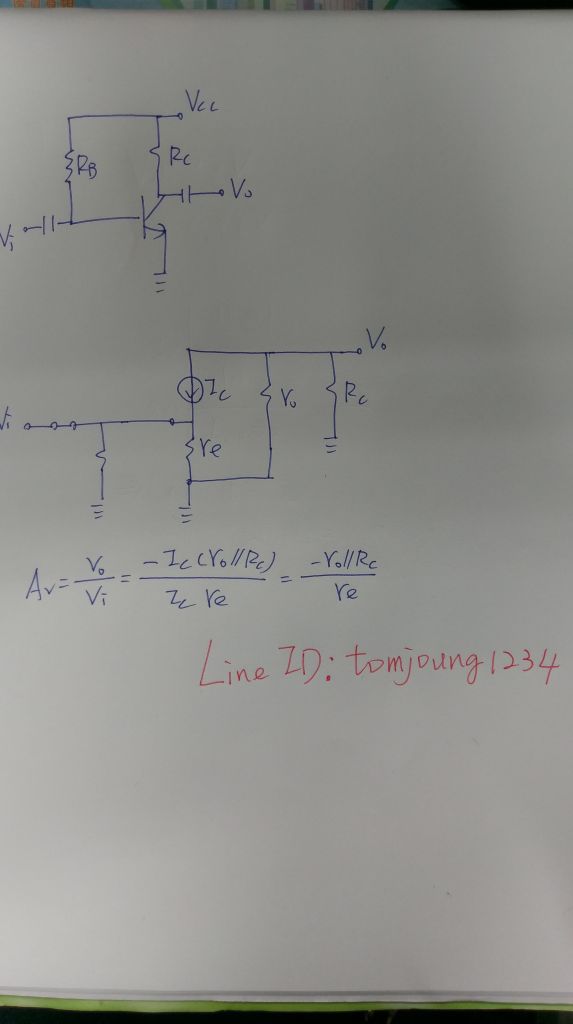 Vcc
RB
Rc
Vo
Vi
Vo
Ic
ro
Rc
Vi
re
Av = Vo/Vi = -Ic(ro//Rc)/Ic re = -ro//Rc/re
Line ID: tomjoung1234